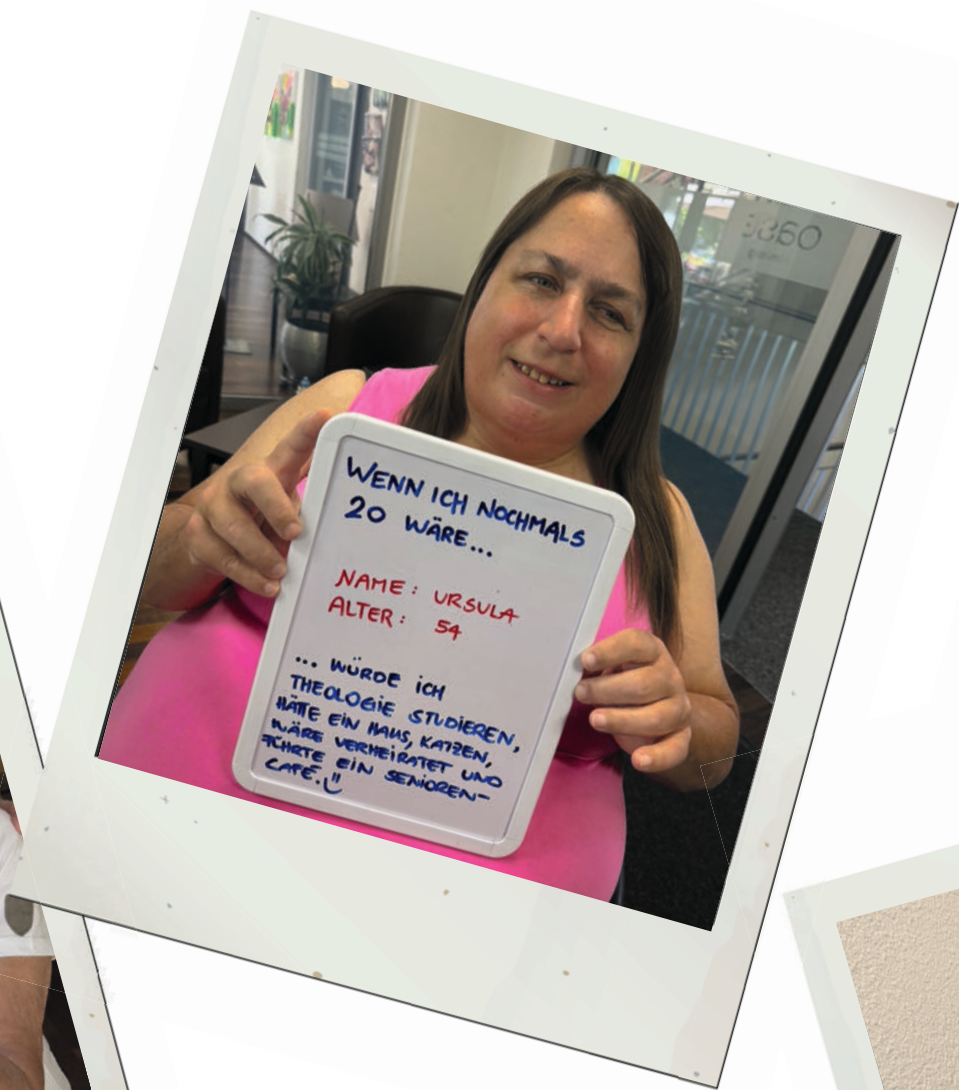 WENN ICH NOCHMALS
20 WÄRE...
NAME: URSULA
ALTER: 54
... WÜRDE ICH
THEOLOGIE STUDIEREN,
HÄTTE EIN HAUS, KATZEN,
WÄRE VERHEIRATET UND
FÜHRTE EIN SENIOREN-
CAFÉ.